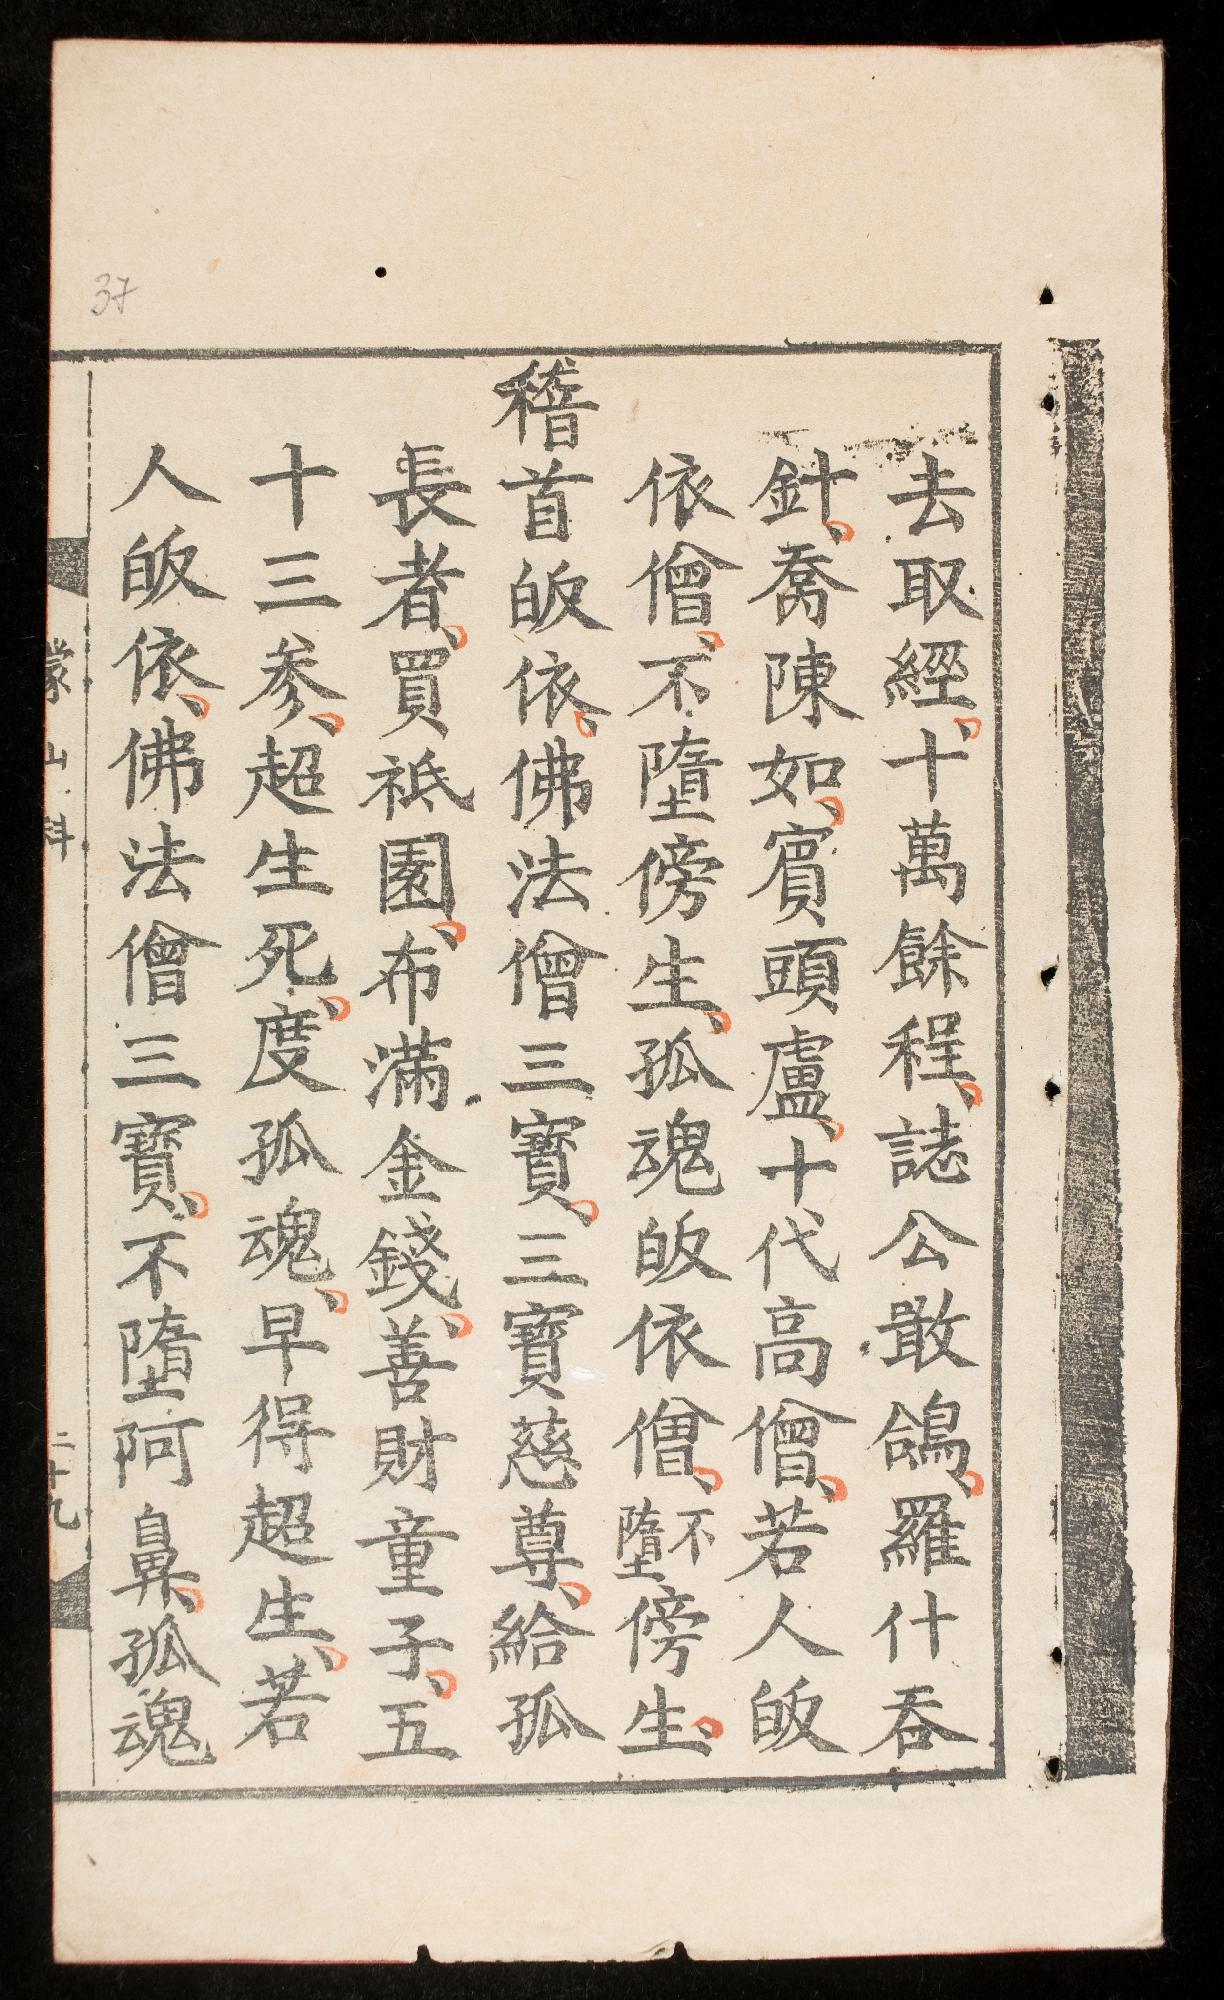 去取經十萬餘程誌公敢鴿羅什吞
針喬陳如賓頭盧十代高僧若人皈
依僧不墮傍生孤魂皈依僧不墮傍生
稽首皈依佛法僧三寶三寶慈尊給孤
長者買祇園布滿金錢善財童子五
十三参超生死度孤魂早得超生若
人皈依佛法僧三寶不墮阿鼻孤魂
蒙山科
二十九
37